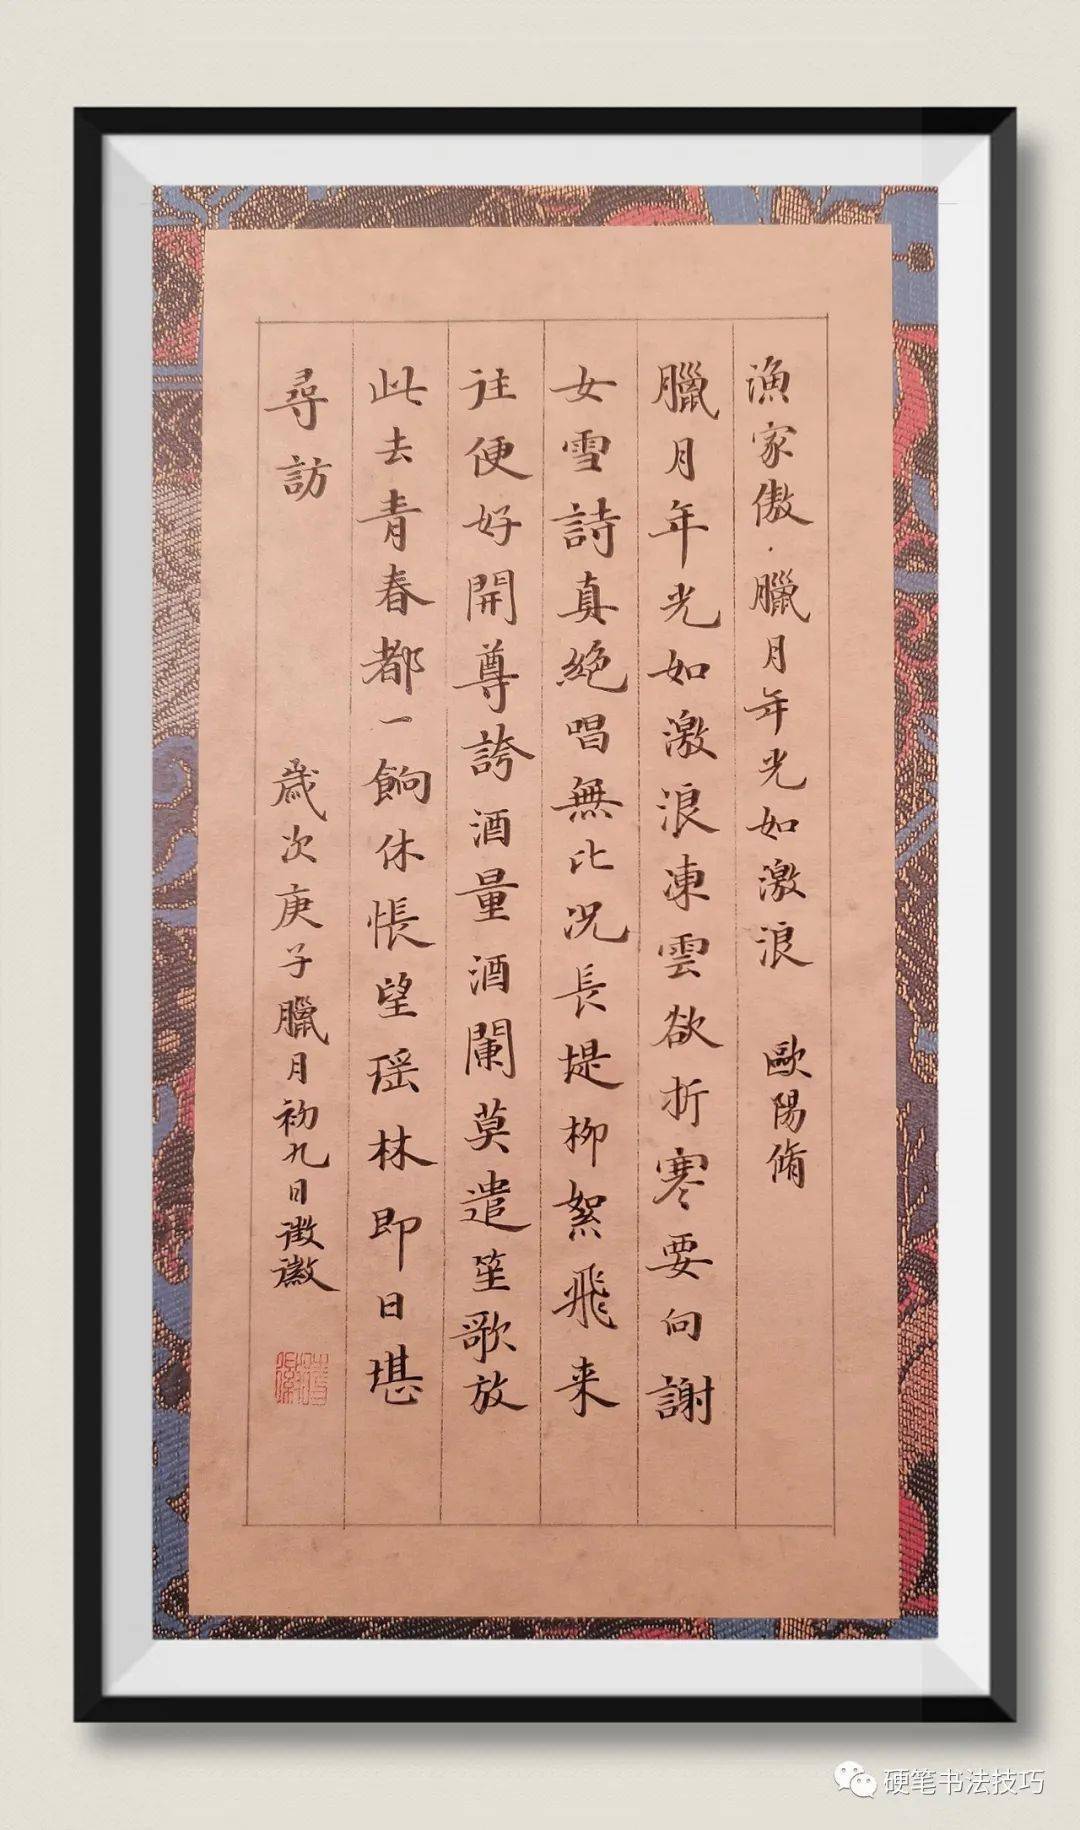 漁家傲·臘月年光如激浪 歐陽脩
臘月年光如激浪凍雲欲折寒要向謝
女雪詩真絕唱無比况長堤柳絮飛来
往便好開尊誇酒量酒闌莫遣笙歌放
此去青春都一餉休悵望瑶林即日堪
尋訪 歲次庚子臘月初九日徵徽
硬笔书法技巧